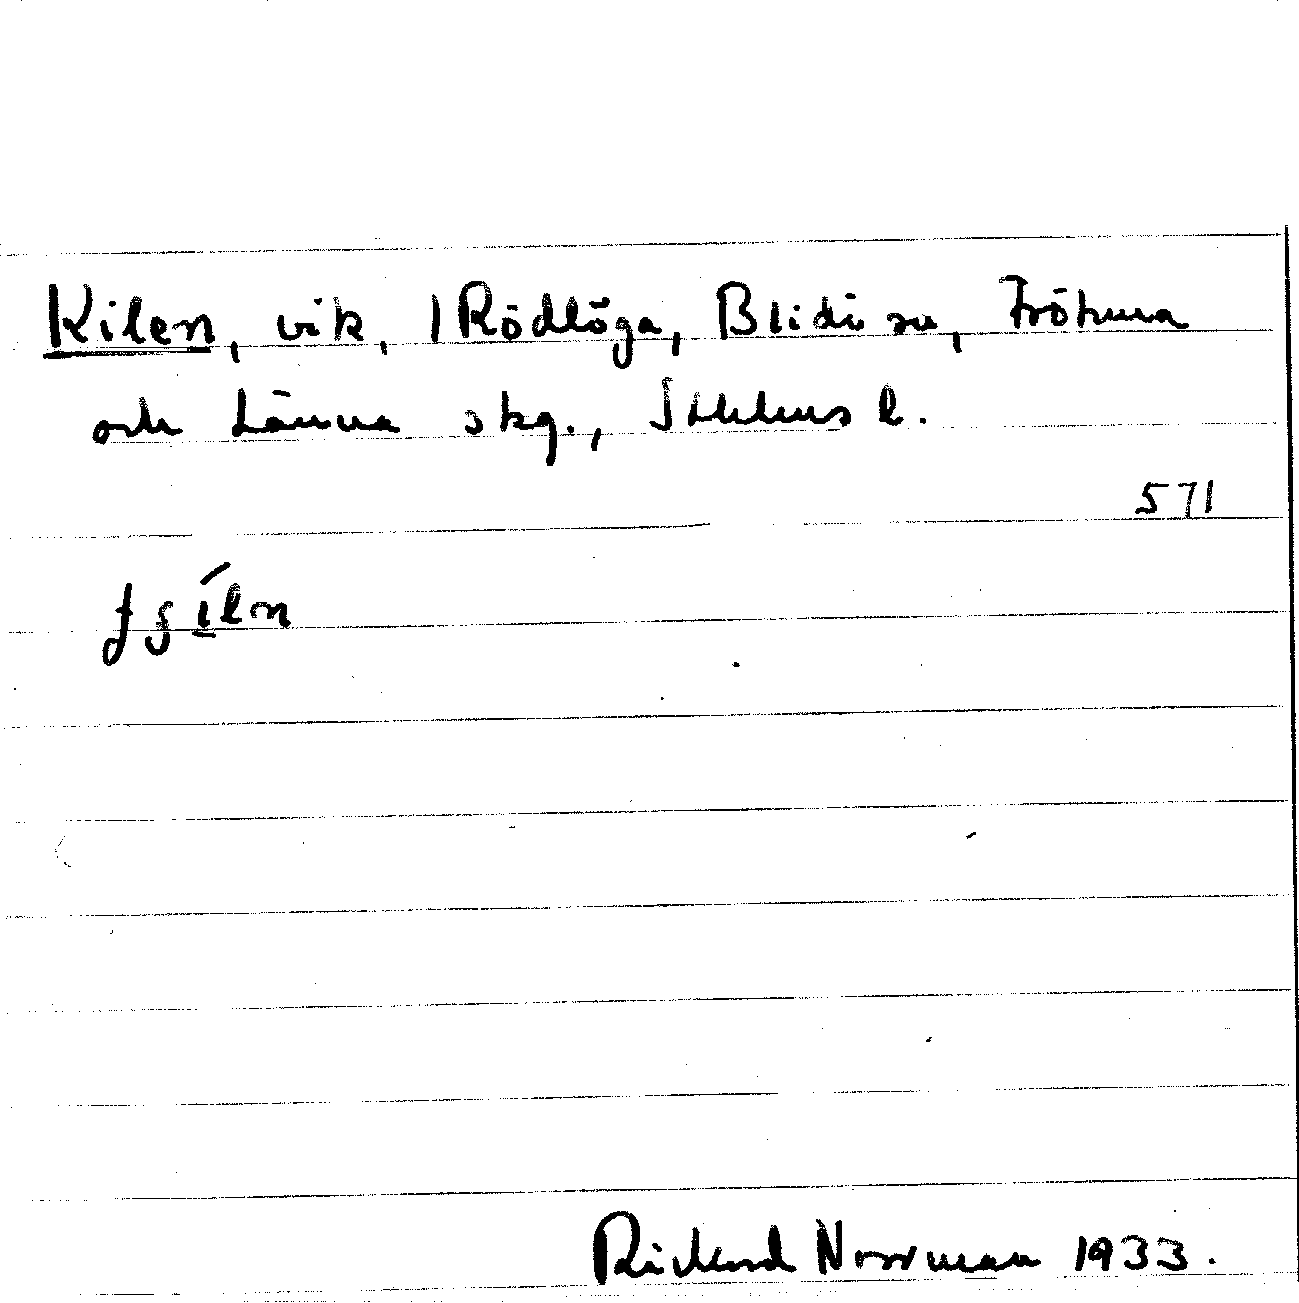 Kilen, vik, 1 Rödlöga, Blidö sn, Frötuna
och Länna skg., Sthlms l.
571
Rickard Norrman 1933.